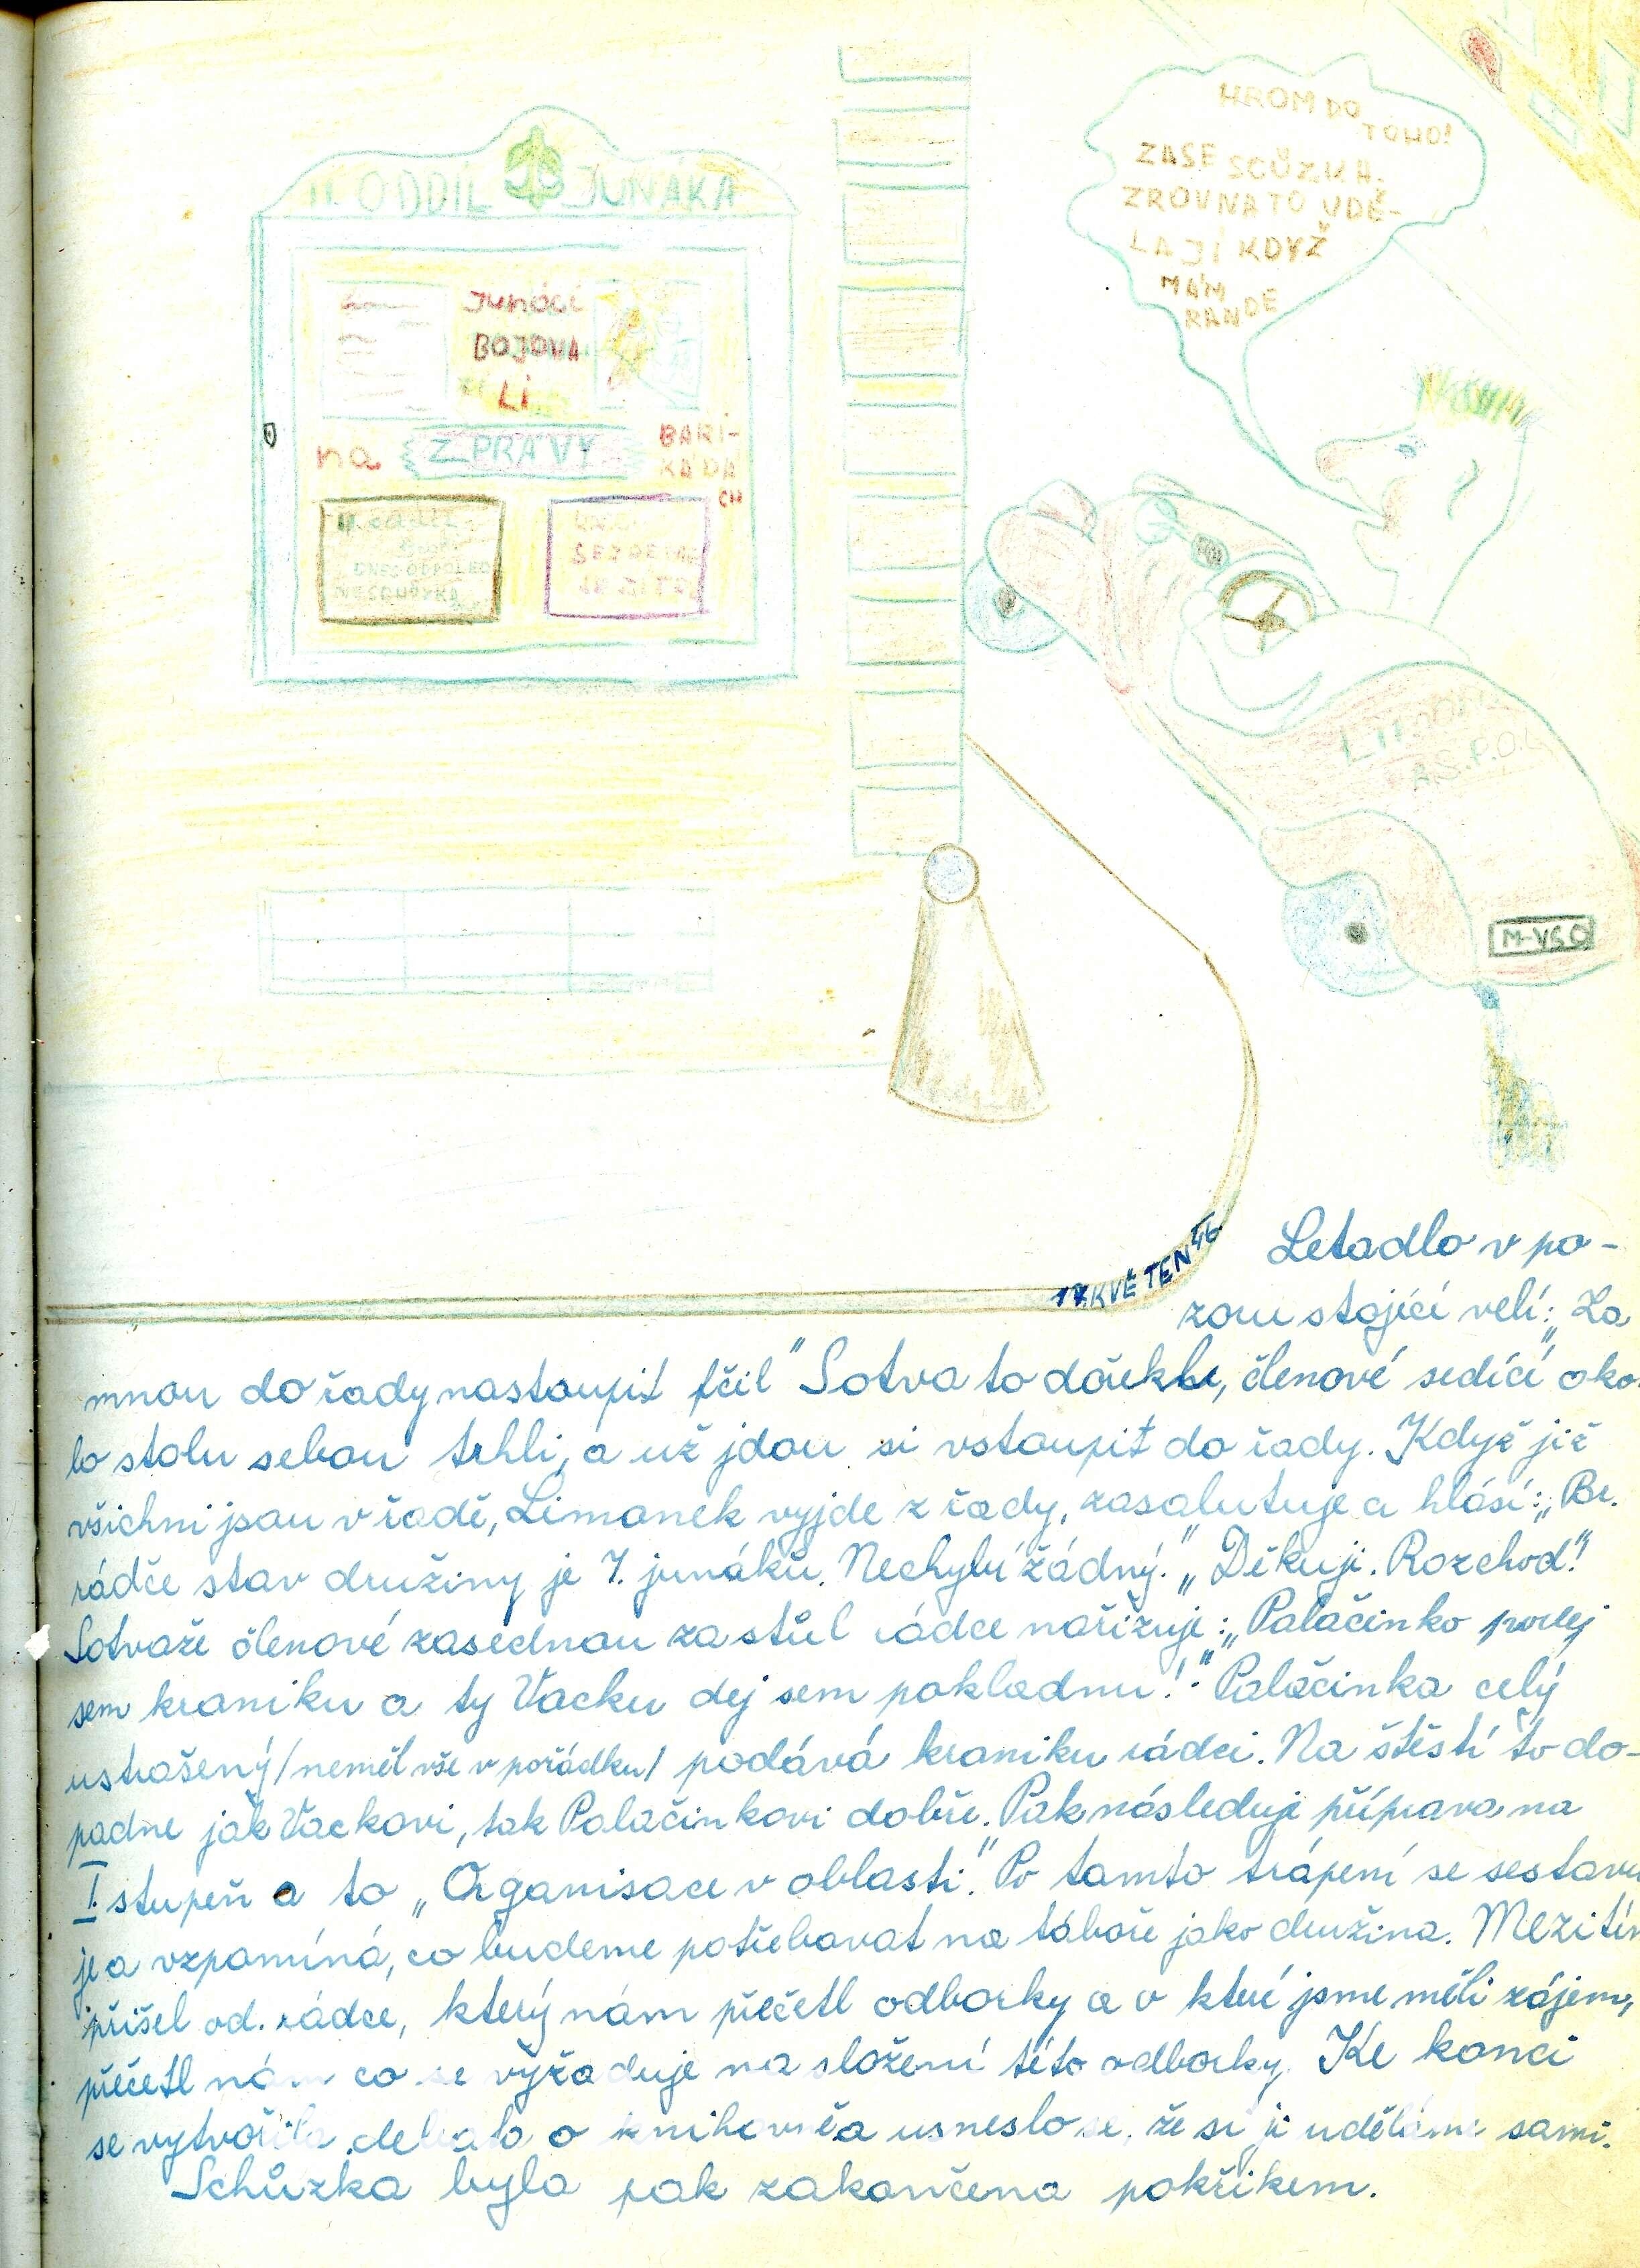 HROM DO
TOHO!
ZASE SCŮZKA.
ZROVNA TO UDĚ-
LAJÍ KDYŽ
MÁM
RANDE
11. ODDÍL JUNÁKA
JUNÁCI
BOJOVA
LI
na ZPRÁVY BARI-
KÁDÁ
CH
11. ODDÍL
DNES ODPOLED
NE SCHŮZKA
A S.P.O.L
M-VSO
17. KVĚTEN 46
Letadlo v po-
zoru stojící velí: „Za
mnou do řady nastoupit fčil" Sotva to dořekle, členové sedící oko-
lo stolu sebou trhli, a už jdou si vstoupit do řady. Když již
všichni jsou v řadě, Limonek vyjde z řady, zasalutuje a hlásí: „Br.
rádče stav družiny je 7. junáků. Nechybí žádný." „Děkuji. Rozchod!"
Sotvaže členové zasednou za stůl rádce nařizuje: „Palačinko podej
sem kroniku a ty Vacku dej sem pokladnu!" Palačinka celý
ustrašený /neměl vše v pořádku/ podává kroniku rádci. Na štěstí to do-
padne jak Vackovi, tak Palačinkovi dobře. Pak následuje příprava na
I. stupeň a to „Organisace v oblasti." Po tomto trápení se sestavu
je a vzpomíná, co budeme potřebovat na táboře jako družina. Mezitím
přišel od. rádce, který nám přečetl odborky a o které jsme měli zájem,
přečetl nám co se vyžaduje na složení této odborky. Ke konci
se vytvořila debata o knihovně a usneslo se, že si ji uděláme sami.
Schůzka byla pak zakončena pokřikem.